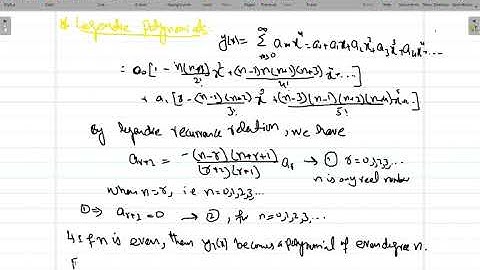 * Legendre Polynomials
y(x) = ∞ Σ r=0 aᵣ xʳ = a₀ + a₁x + a₂x² + a₃x³ + a₄x⁴ ...
= a₀ [1 - n(n+1)/2! x² + (n-2)n(n+1)(n+3)/4! x⁴ ...]
+ a₁ [x - (n-1)(n+2)/3! x³ + (n-3)(n-1)(n+2)(n+4)/5! x⁵ ...]
By legendre recurrence relation, we have
aᵣ₊₂ = -(n-r)(n+r+1)/(r+2)(r+1) aᵣ → ① r=0,1,2,3,...
n is any real number
when n=r, i.e n=0,1,2,3,...
① ⇒ aᵣ₊₂ = 0 → ②, for n=0,1,2,3,...
If n is even, then y₁(x) becomes a polynomial of even degree n.